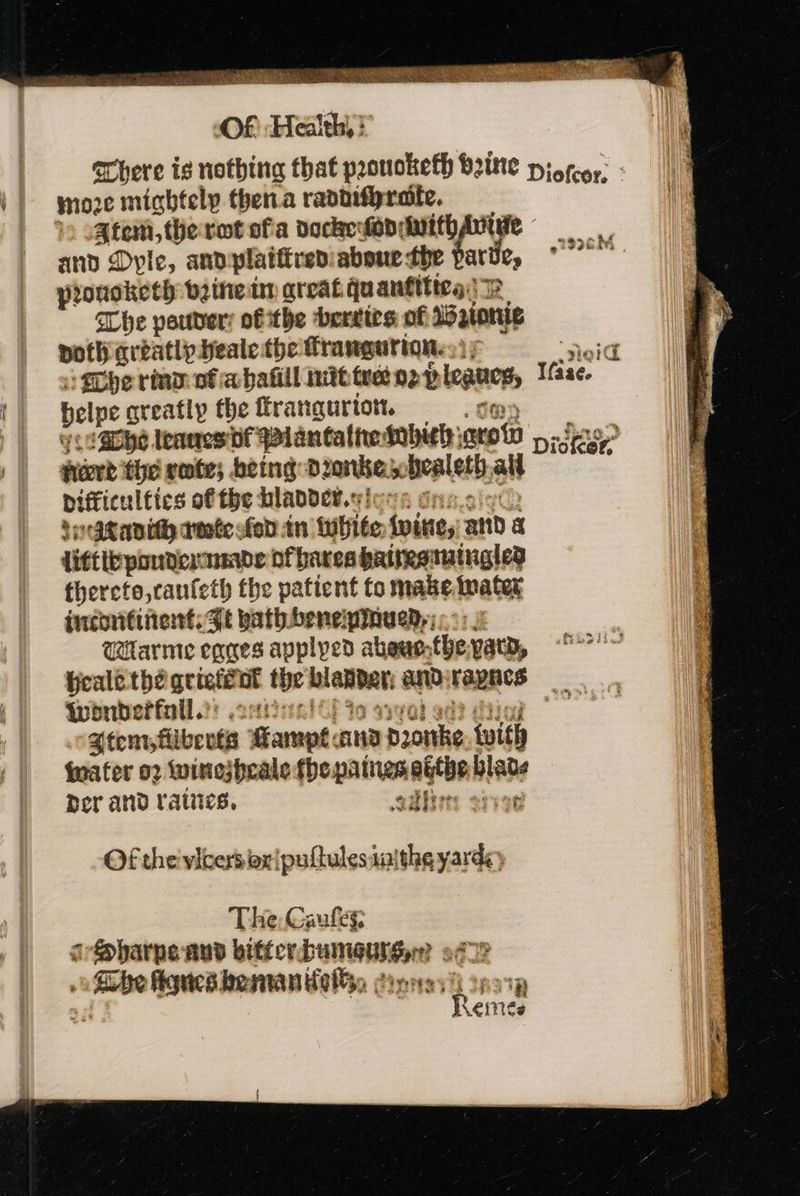 Of Health,
There is nothing that prouoketh vrine Dioscor.
more mightely then a raddish roote.
Item, the root of a docke sod with wine
and Oyle, and plaistred aboue the yarde,
prouoketh vrine in great quantities.
The pouder of the berries of Brionie
doth greatly heale the strangurion.
The rind of a hasill nut tree or ẏ leaues, Isaac.
helpe greatly the strangurion.
The leaues of Plantaine which grow Dioscor.
neere the roote, being dronke, healeth all
difficulties of the bladder.
Raddish roote sod in white wine, and a
little pouder made of hares haires mingled
thereto, causeth the patient to make water
incontinent. It hath bene proued,
Warme egges applyed aboue the yard,
heale the griefe of the bladder, and raynes
wonderfull.
Item, filberts stampt and dronke with
water or wine, heale the paines of the blad-
der and raines.
Of the vlcers or pustules in the yarde
The Causes.
Sharpe and bitter humours,
The signes be manifest,
Reme-